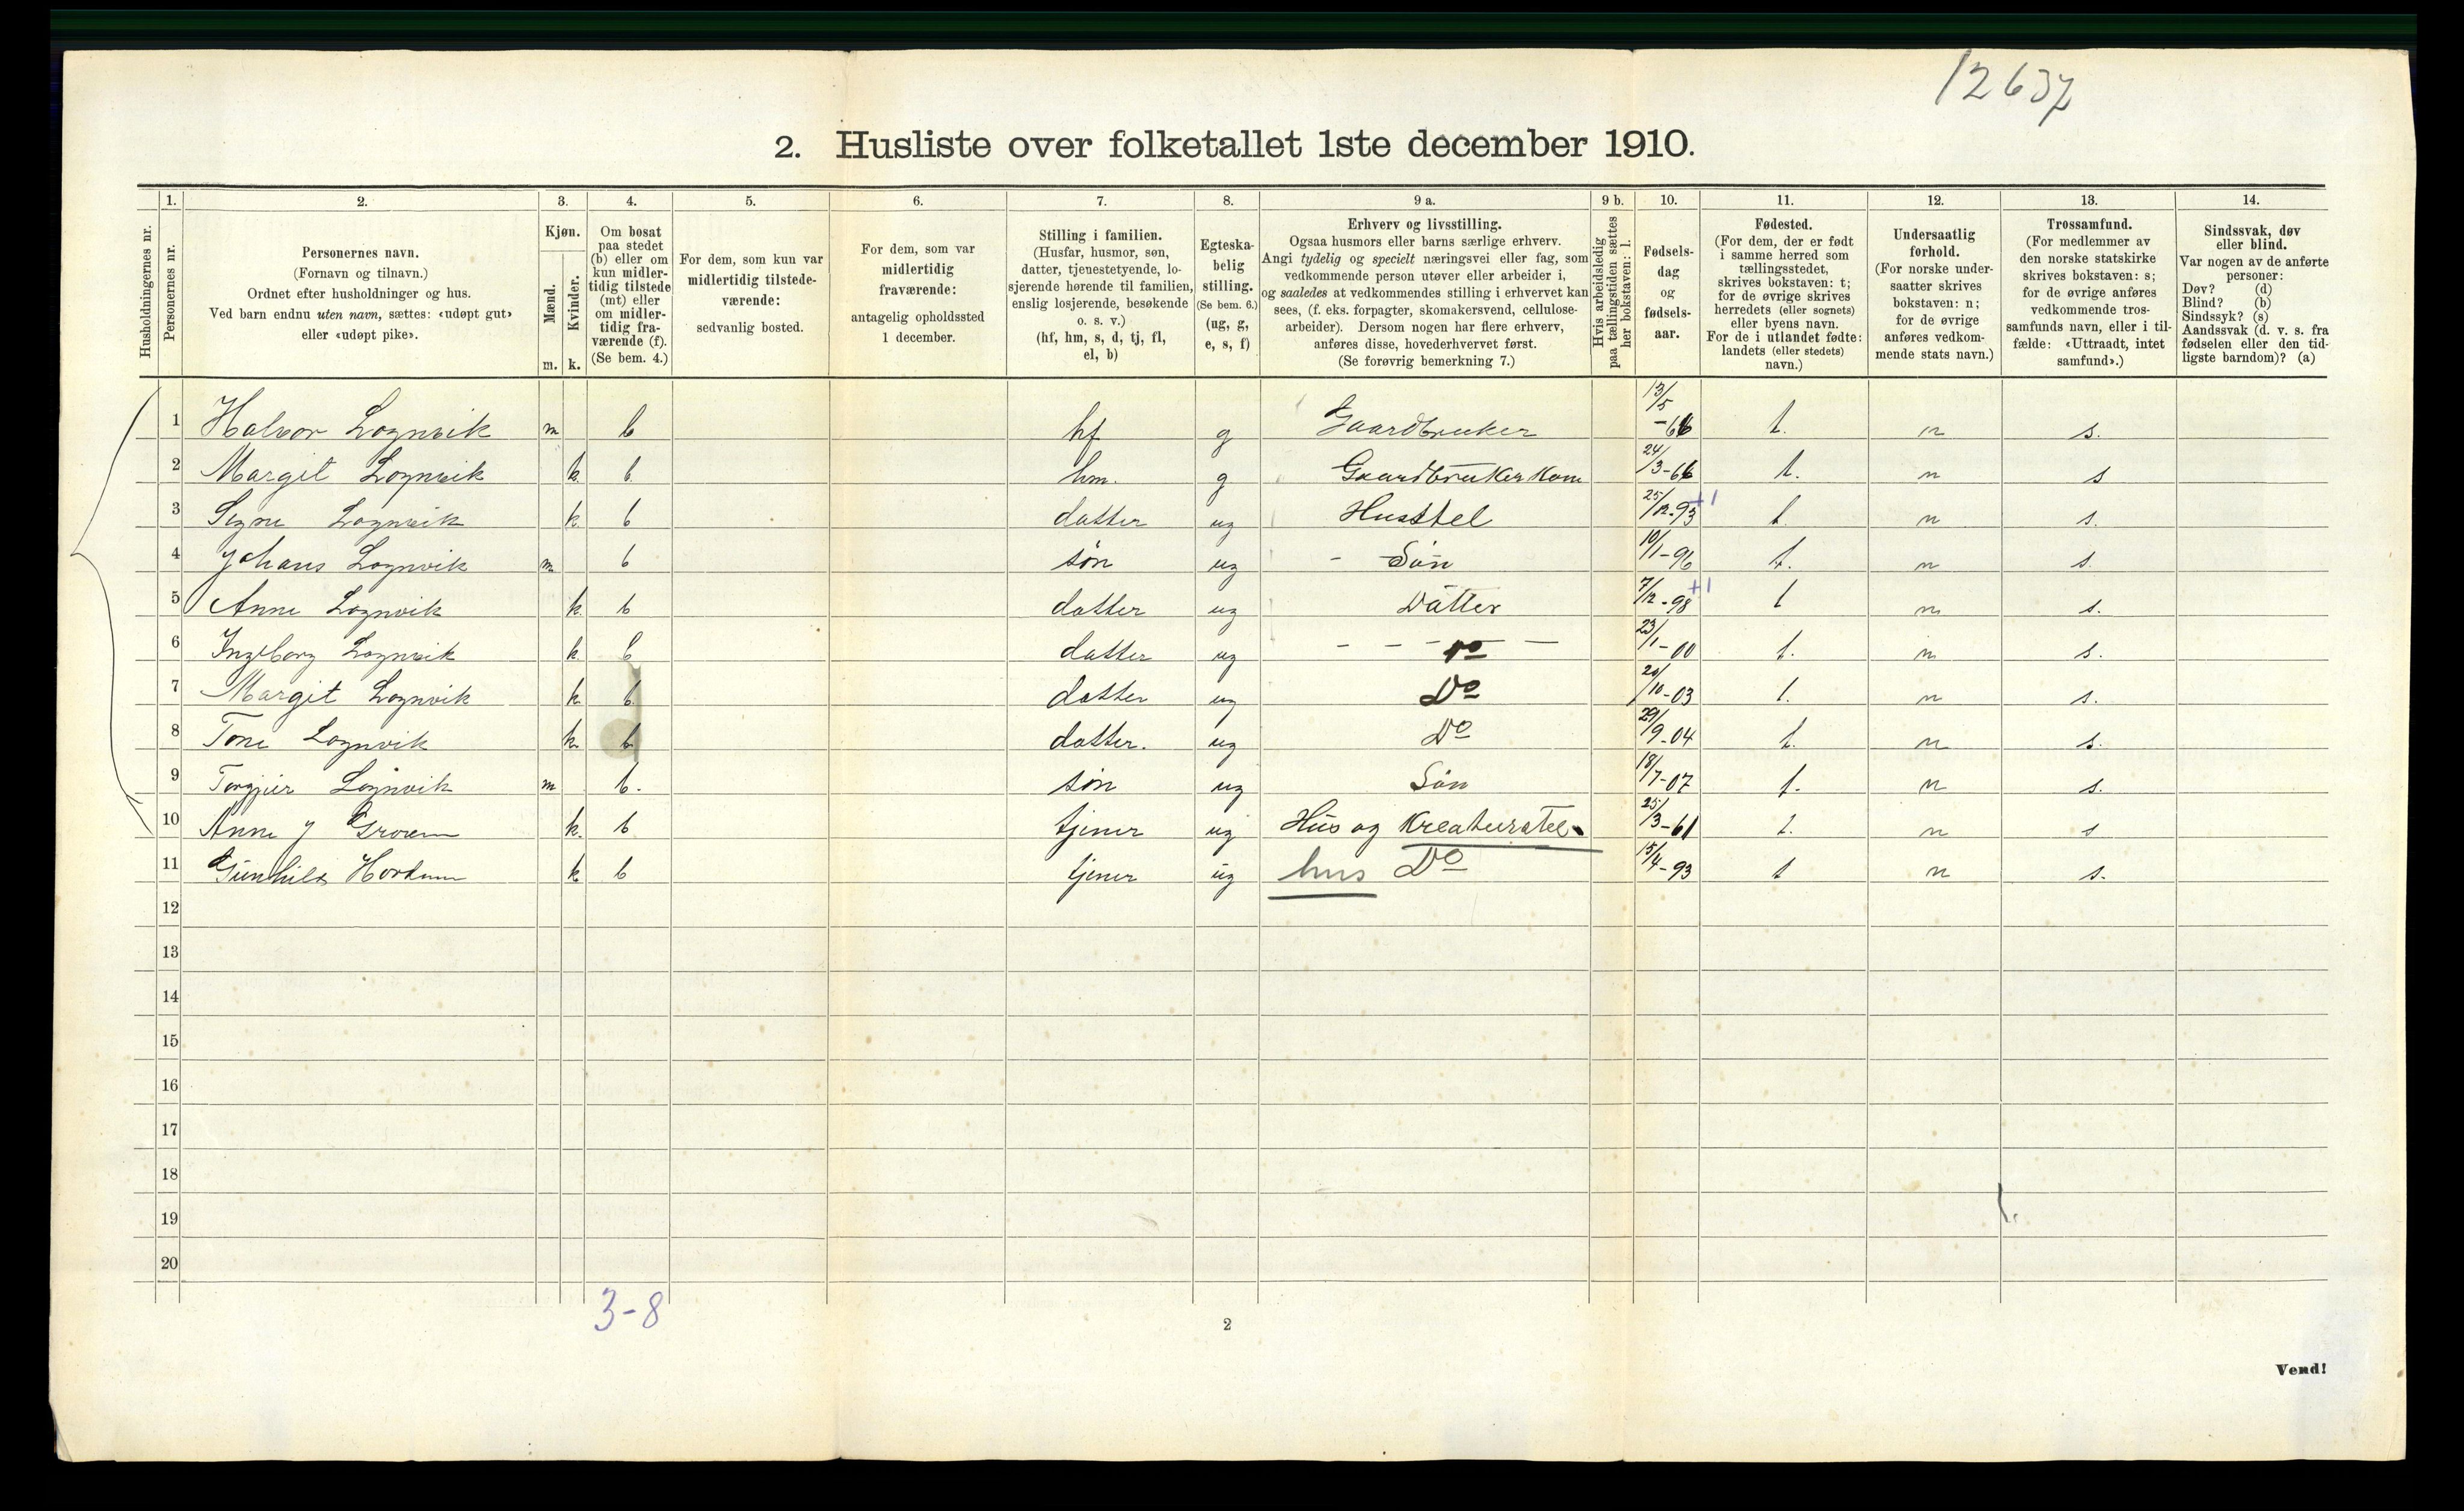 12637
2. Husliste over folketallet 1ste december 1910.
Husholdningernes nr.
1.
Personernes nr.
2.
Personernes navn.
(Fornavn og tilnavn.)
Ordnet efter husholdninger og hus.
Ved barn endnu uten navn, sættes: «udøpt gut»
eller «udøpt pike».
3.
Kjøn.
Mænd.
Kvinder.
m. k.
4.
Om bosat
paa stedet
(b) eller om
kun midler-
tidig tilstede
(mt) eller
om midler-
tidig fra-
værende (f).
(Se bem. 4.)
5.
For dem, som kun var
midlertidig tilstede-
værende:
sedvanlig bosted.
6.
For dem, som var
midlertidig
fraværende:
antagelig opholdssted
1 december.
7.
Stilling i familien.
(Husfar, husmor, søn,
datter, tjenestetyende, lo-
sjerende hørende til familien,
enslig losjerende, besøkende
o. s. v.)
(hf, hm, s, d, tj, fl,
el, b)
8.
Egteska-
belig
stilling.
(Se bem. 6.)
(ug, g,
e, s, f)
9 a.
Erhverv og livsstilling.
Ogsaa husmors eller barns særlige erhverv.
Angi tydelig og specielt næringsvei eller fag, som
vedkommende person utøver eller arbeider i,
og saaledes at vedkommendes stilling i erhvervet kan
sees, (f. eks. forpagter, skomakersvend, cellulose-
arbeider). Dersom nogen har flere erhverv,
anføres disse, hovederhvervet først.
(Se forøvrig bemerkning 7.)
9 b.
Hvis arbeidsledig
paa tællingstiden sættes
her bokstaven: l.
10.
Fødsels-
dag
og
fødsels-
aar.
11.
Fødested.
(For dem, der er født
i samme herred som
tællingsstedet,
skrives bokstaven: t;
for de øvrige skrives
herredets (eller sognets)
eller byens navn.
For de i utlandet fødte:
landets (eller stedets)
navn.)
12.
Undersaatlig
forhold.
(For norske under-
saatter skrives
bokstaven: n;
for de øvrige
anføres vedkom-
mende stats navn.)
13.
Trossamfund.
(For medlemmer av
den norske statskirke
skrives bokstaven: s;
for de øvrige anføres
vedkommende tros-
samfunds navn, eller i til-
fælde: «Uttraadt, intet
samfund».)
14.
Sindssvak, døv
eller blind.
Var nogen av de anførte
personer:
Døv? (d)
Blind? (b)
Sindssyk? (s)
Aandssvak (d. v. s. fra
fødselen eller den tid-
ligste barndom)? (a)
1 Halvor Lognvik m b hf g Gaardbruker 13/5 -66 t. n s.
2 Margit Lognvik k. b. hm. g Gaardbrukerkone 24/3-66 t. n s
3 Signe Lognvik k. b datter ug Husstel 25/12-93 +1 t. n s.
4 Johans Lognvik m b søn ug - Søn 10/1-96 t. n s.
5 Anne Lognvik k. b datter ug Datter 7/12-98 +1 t n s.
6 Ingeborg Lognvik k. b datter ug - - - Do - 23/1-00 t. n s.
7 Margit Lognvik k. b datter ug Do 20/10-03 t. n s.
8 Tone Lognvik k. b datter. ug Do 29/9-04 t. n s.
9 Torgjus Lognvik m b. søn ug Søn 18/7-07 t. n s.
10 Anne J Groven k. b tjener ug Hus og Kreaturstel 25/3-61 t. n s
11 Gunhild k b tjener ug hus Do 15/4-93 t n s.
12
13
14
15
16
17
18
19
20
3-8
2
Vend!